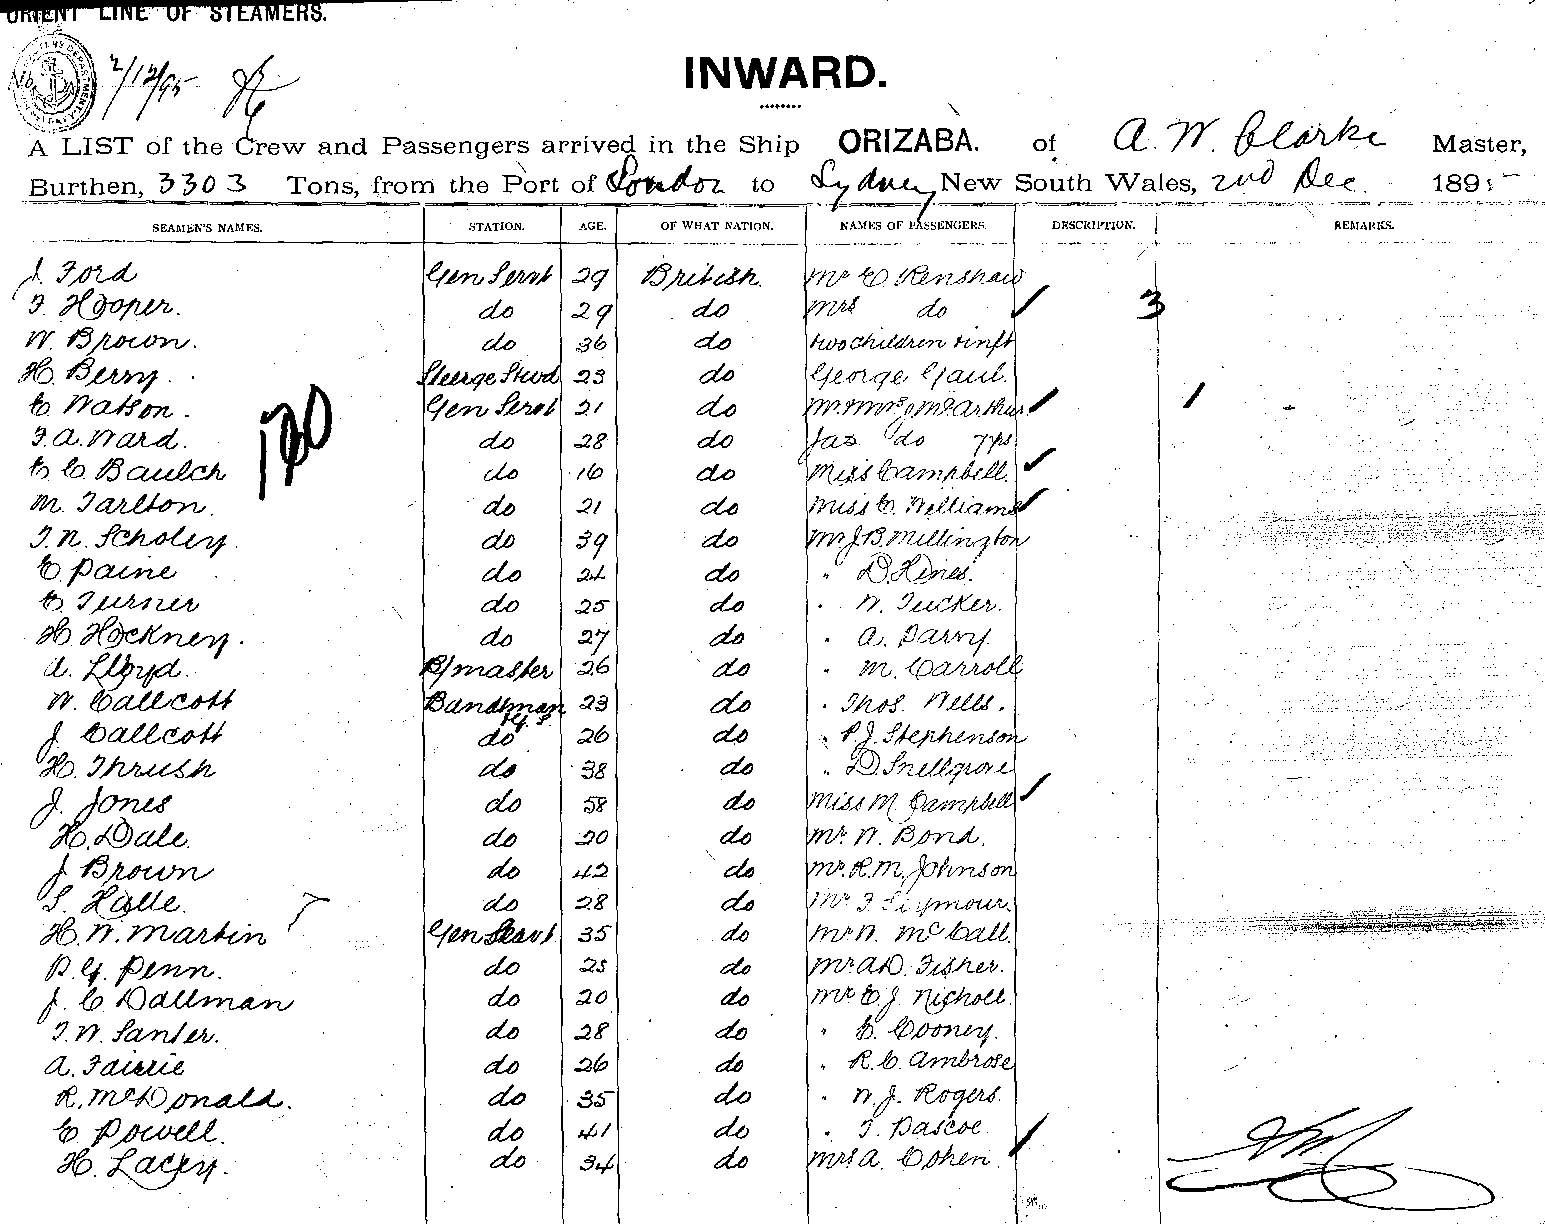 ORIENT LINE OF STEAMERS.
2/12/95
INWARD.
A LIST of the Crew and Passengers arrived in the Ship ORIZABA. of A. W. Clarke Master,
Burthen, 3303 Tons, from the Port of London to Sydney New South Wales, 2nd Dec. 1895
SEAMEN'S NAMES. STATION. AGE. OF WHAT NATION. NAMES OF PASSENGERS. DESCRIPTION. REMARKS.
J. Ford Gen Servt 29 British. Mr C Renshaw
F. Hooper. do 29 do Mrs do 3
W. Brown. do 36 do two children + inft
H. Berry. Steerge Stwd 23 do George Gaul.
C Watson. Gen Servt 21 do Mr Mrs J McArthur 1
F. A. Ward. do 28 do Jas do 7 yrs.
C C Baulch do 16 do Miss Campbell.
M. Tarlton. do 21 do Miss C. Williams
T. N. Scholey. do 39 do Mr J B Millington
C Paine do 24 do " D. Hines.
C. Turner do 25 do " W. Tucker.
H. Hockney. do 27 do " A. Parry.
A. Lloyd. B/master 26 do " M. Carroll
W. Callcott Bandsman 23 do " Thos. Wells.
J. Callcott do 26 do " P. J. Stephenson
H. Thrush do 38 do " D Snellgrove
J. Jones do 58 do Miss M Campbell
H. Dale. do 20 do Mr. W. Bond.
J. Brown do 42 do Mr. R. M. Johnson
S. Halle. do 28 do Mr F. Seymour.
H. W. Martin Gen Servt 35 do Mr W. McCall.
P. G. Penn. do 25 do Mr A D. Fisher.
J. C Dallman do 20 do Mr E. J. Nicholl.
T. W. Santer. do 28 do " C. Cooney.
A. Fairie do 26 do " R. C. Ambrose
R. McDonald. do 35 do " W. J. Rogers.
C Powell. do 41 do " T. Pascoe.
H. Lacey. do 34 do Mrs A. Cohen.